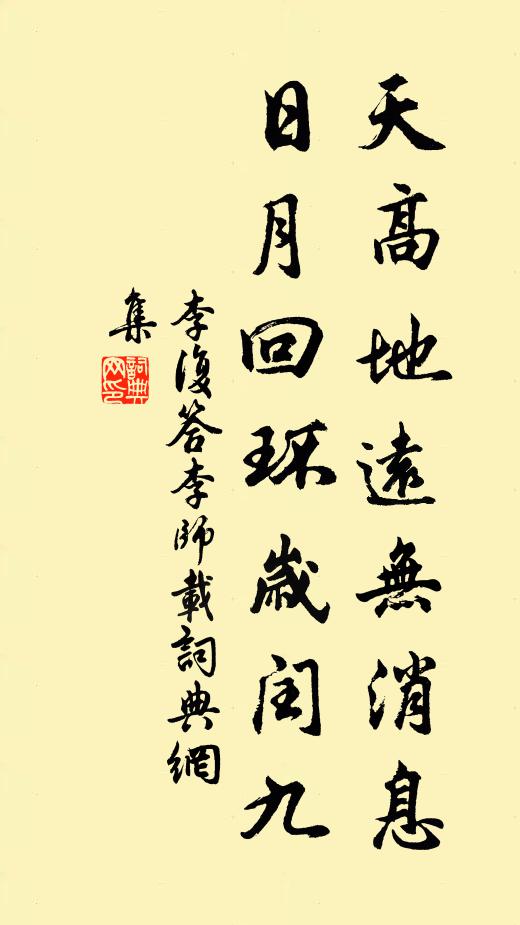 天高地遠無消息
日月回环歲闰九
李復答李師載詞典網
集
詞典網印